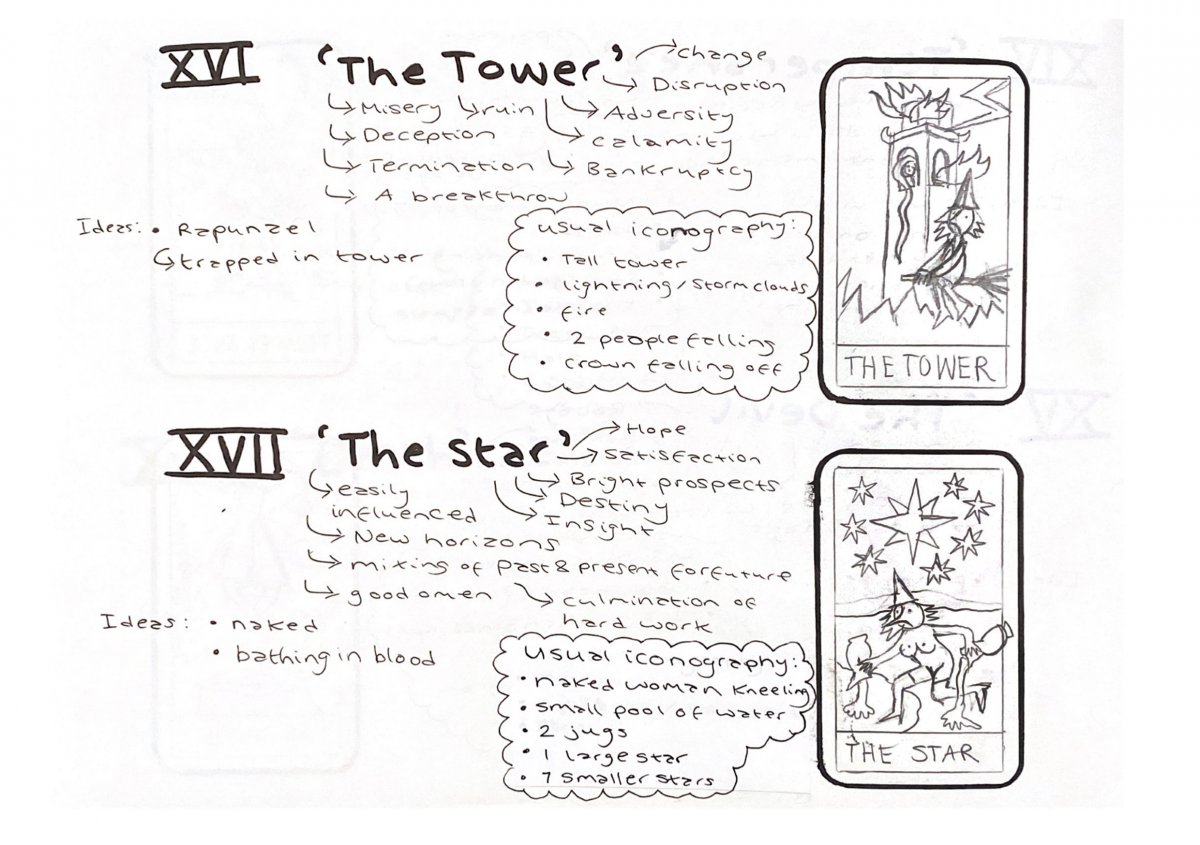 XVI 'The Tower'
→ change
↳ Disruption
↳ Misery ↳ ruin ↳ Adversity
↳ Deception ↳ calamity
↳ Termination ↳ Bankruptcy
↳ A breakthrow
Ideas: • Rapunzel
↳ trapped in tower
usual iconography:
• Tall tower
• lightning/storm clouds
• fire
• 2 people falling
• crown falling off
THE TOWER
XVII 'The Star'
→ Hope
→ satisfaction
↳ easily
influenced
↳ Bright prospects
↳ Destiny
↳ Insight
↳ New horizons
↳ mixing of past & present for future
↳ good omen
↳ culmination of
hard work
Ideas: • naked
• bathing in blood
usual iconography:
• naked woman kneeling
• small pool of water
• 2 jugs
• 1 large star
• 7 smaller stars
THE STAR